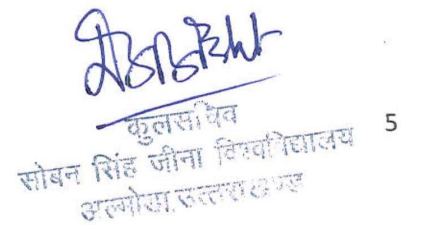 कुलसचिव
सोबन सिंह जीना विश्वविद्यालय
अल्मोड़ा, उत्तराखण्ड
5